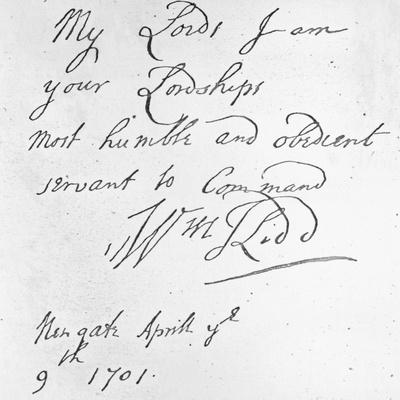 My Lords I am
your Lordships
most humble and obedient
servant to Command
Wm Kidd
Newgate Aprill ye
9th 1701.